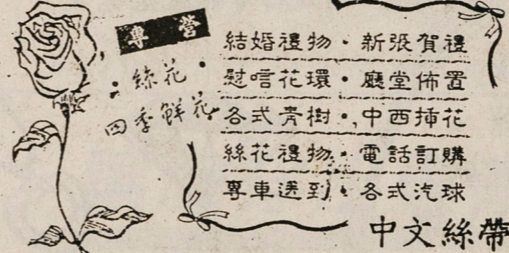 專營
•絲花•
四季鮮花
結婚禮物•新張賀禮
慰唁花環•廳堂佈置
各式青樹•中西插花
絲花禮物•電話訂購
專車送到•各式汽球
中文絲帶